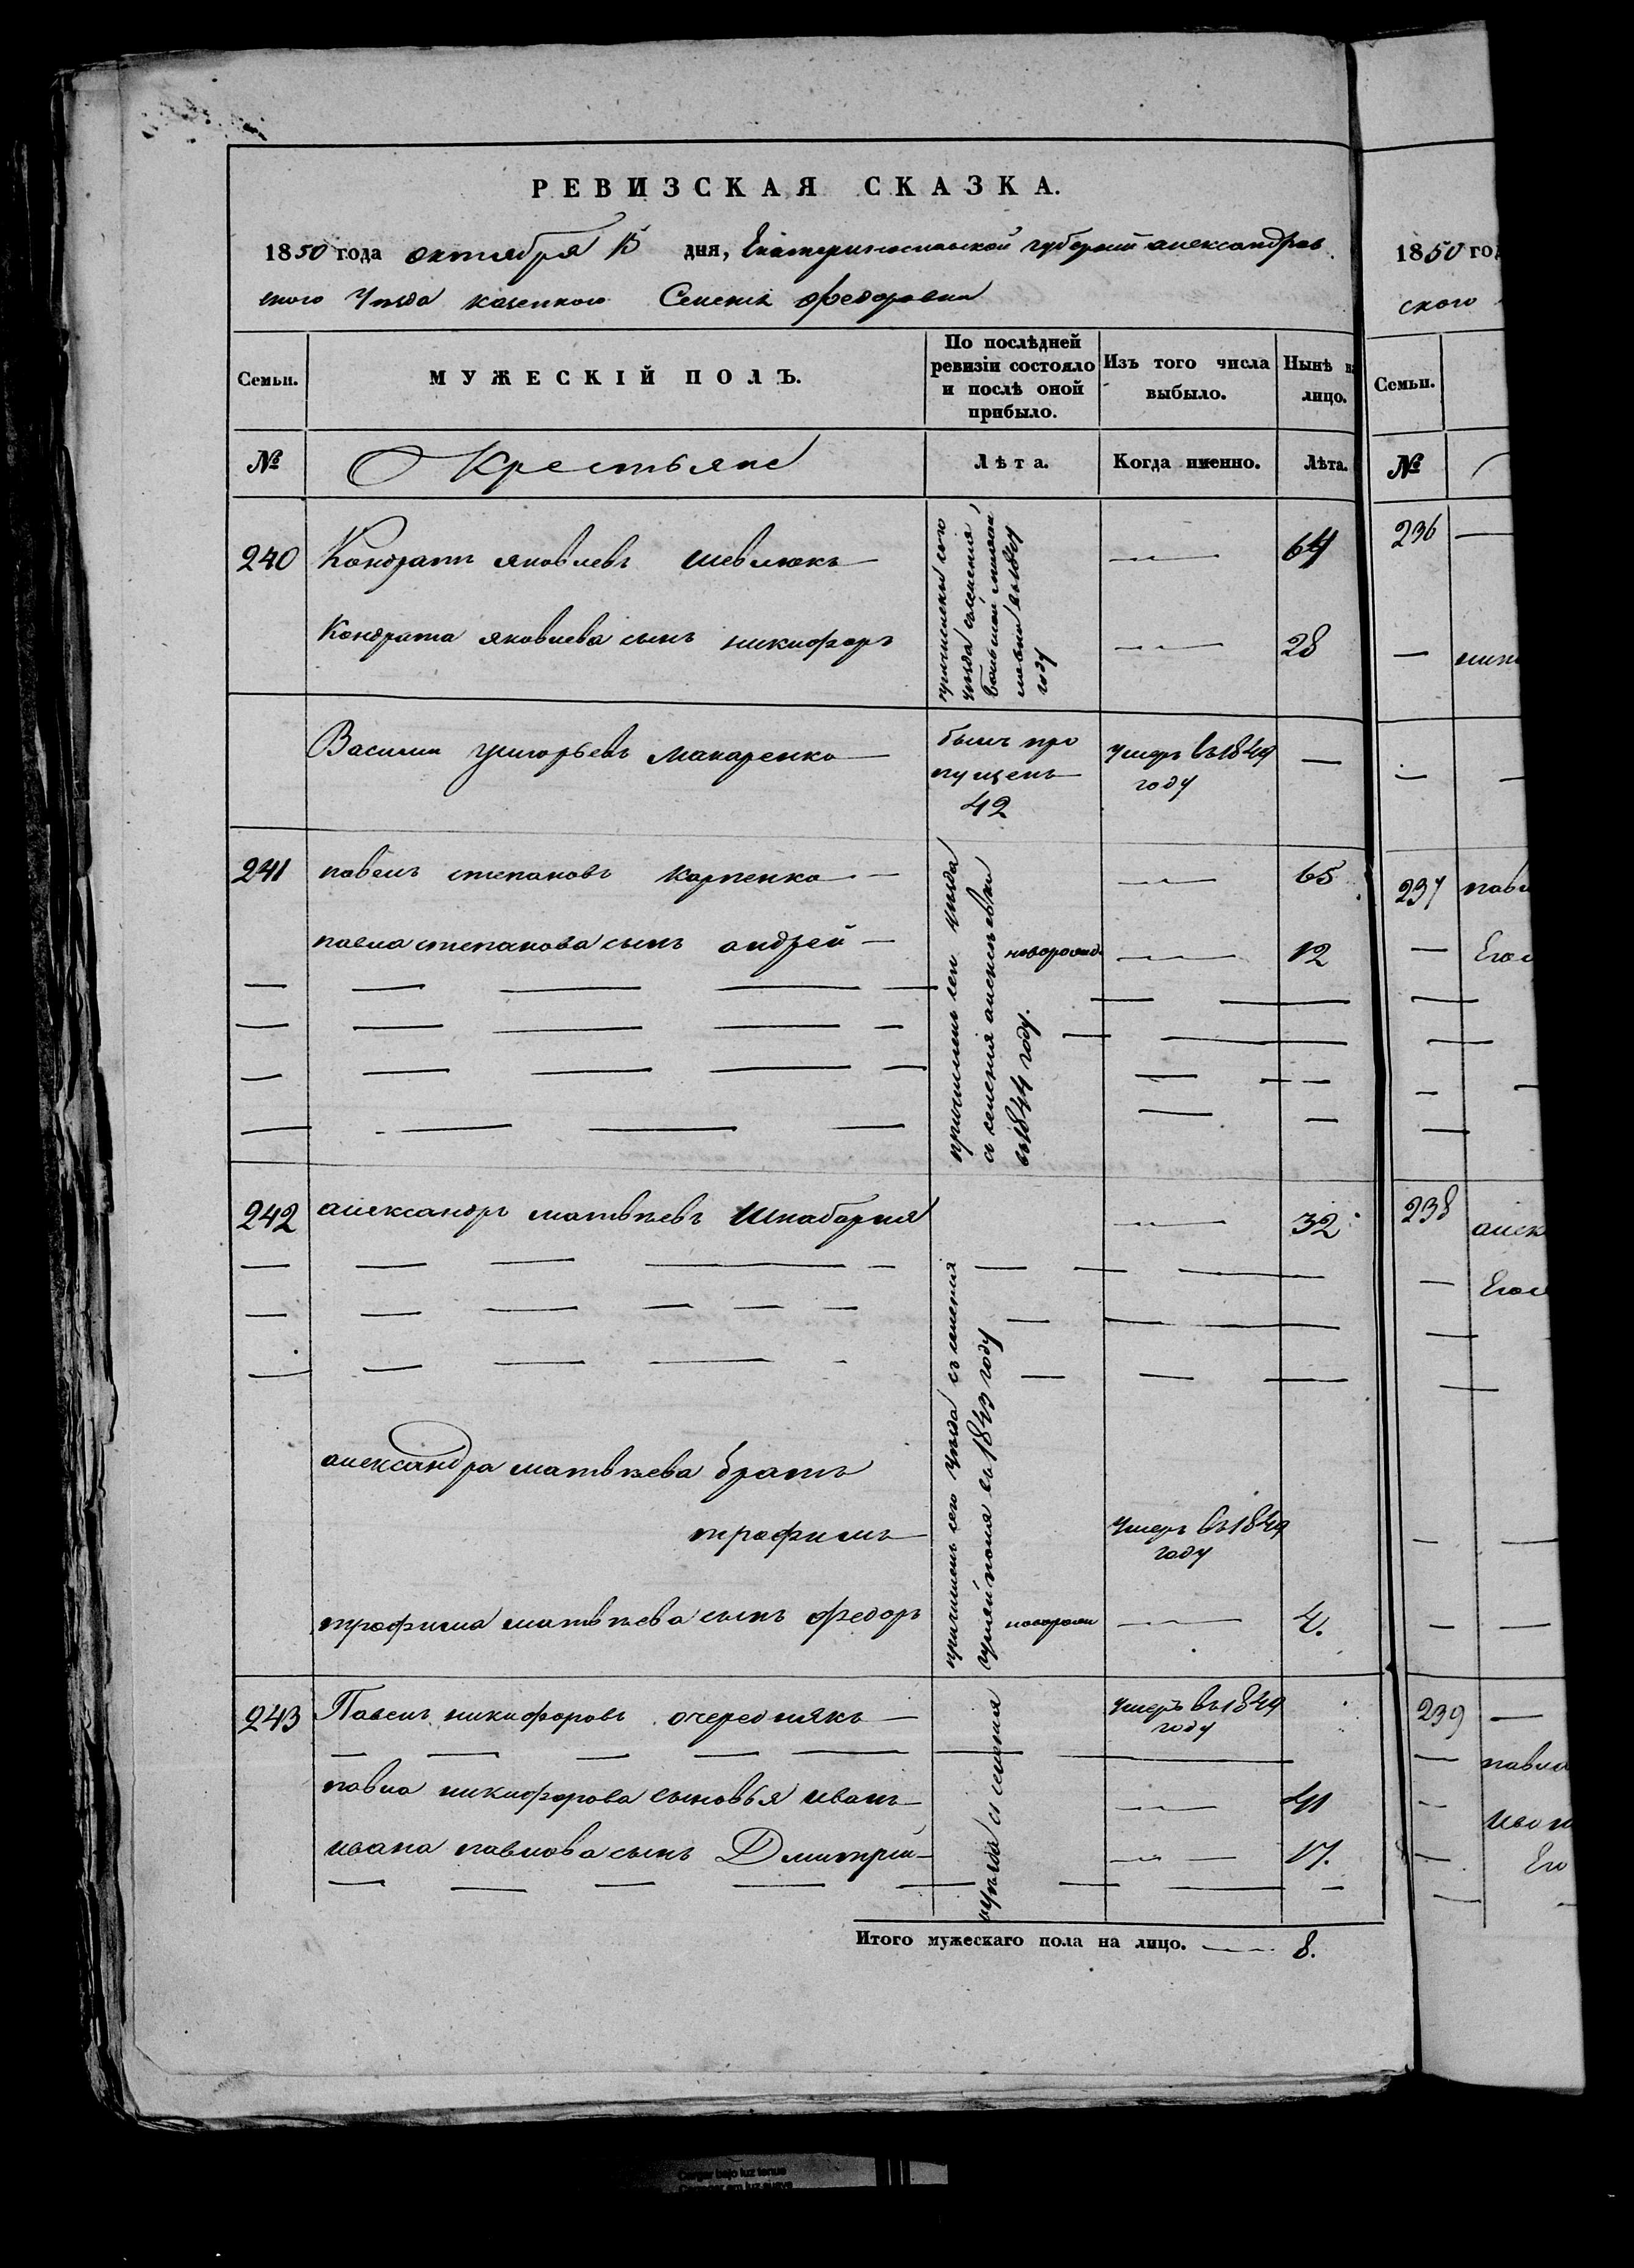 РЕВИЗСКАЯ СКАЗКА.
1850 года октября 15 дня, Екатеринославской губернии александров
ского Уезда казенного Селения федоровки
Семьи.
МУЖЕСКІЙ ПОЛЪ.
По послѣдней
ревизіи состояло
и послѣ оной
прибыло.
Изъ того числа
выбыло.
Нынѣ на
лицо.
№
Крестьяне
Лѣта.
Когда именно.
Лѣта.
240 Кондратъ яковлевъ шевлюкъ 64
Кондрата яковлева сынъ никифоръ 28
причислены сего
уезда селения
году
Василий григорьевъ макаренко
былъ про
пущенъ
42
умеръ въ 1849
году
241 павелъ степановъ карпенко 65
павла степанова сынъ андрей новорожд. 12
причисленъ сего уезда
съ селения алексеевки
въ 1844 году.
242 александръ матвѣевъ Шкабарня 32
александра матвѣева братъ
трофимъ
умеръ въ 1849
году
трофима матвѣева сынъ федоръ 4.
причисленъ сего уезда съ селения
гуляйполя въ 1843 году
243 Павелъ никифоровъ очередникъ
умеръ въ 1849
году
павла никифорова сыновья иванъ 41
ивана павлова сынъ Дмитрій 17.
уезда съ селения
Итого мужескаго пола на лицо. 8.
1850 год
ского
Семьи.
№
236
237 павл
Его с
238 алек
Его с
239
павла
ивана
Его